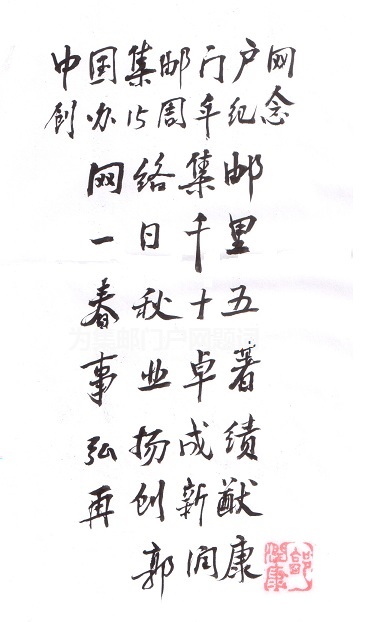 中国集邮门户网
创办15周年纪念
网络集邮
一日千里
春秋十五
事业卓著
弘扬成绩
再创新猷
郭润康
郭润康
为集邮门户网题词